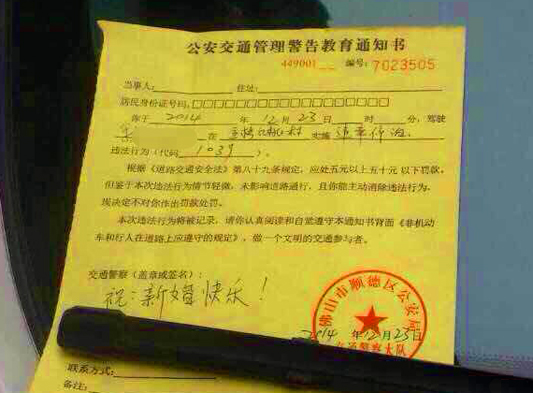 公安交通管理警告教育通知书
449001__ 编号:7023505
当事人: 住址:
居民身份证号码:□□□□□□□□□□□□□□□□□□
你于 2014 年 12 月 23 日 时 分,驾驶
在 实施 违章停泊
违法行为(代码 1039 )。
根据《道路交通安全法》第八十九条规定,应处五元以上五十元 以下罚款,
但鉴于本次违法行为情节轻微,未影响道路通行,且你能主动消除违法行为,
现决定不对你作出罚款处罚。
本次违法行为将被记录,请你认真阅读和自觉遵守本通知书背面《非机动
车和行人在道路上应遵守的规定》,做一个文明的交通参与者。
交通警察(盖章或签名):
祝:新婚快乐!
佛山市顺德区公安局
2014 年 12 月 23 日
交通警察大队
联系方式:
备注: